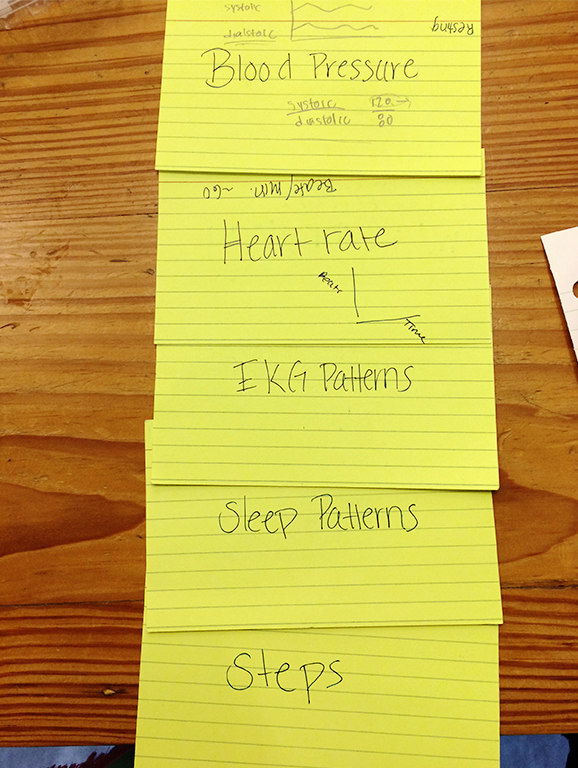 systolic
dialstolic
Resting
Blood Pressure
systolic 120
diastolic 80
Beats/Min. ~60
Heart rate
Beats
Time
EKG Patterns
Sleep Patterns
Steps